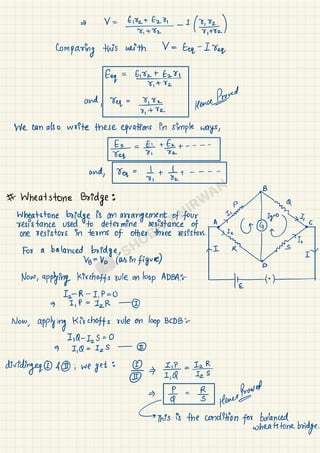 ⇒ V = E₁r₂ + E₂r₁ / r₁+r₂ − I (r₁r₂ / r₁+r₂)
Comparing this with V = Eeq − I req
Eeq = E₁r₂ + E₂r₁ / r₁+r₂
and, req = r₁r₂ / r₁+r₂
Hence Proved
We can also write these equations in simple ways,
E₂ / req = E₁/r₁ + E₂/r₂ + -----
and, req = 1/r₁ + 1/r₂ + ------
* Wheatstone Bridge:
Wheatstone bridge is an arrangement of four
resistance used to determine resistance of
one resistors in terms of other three resistors.
For a balanced bridge,
V_B = V_D (as in figure)
Now, applying Kirchoffs rule on loop ADBA:-
I₂-R-I₁P=0
⇒ I₁P = I₂R — Ⓘ
Now, applying Kirchoffs rule on loop BCDB:-
I₁Q-I₂S=0
⇒ I₁Q = I₂S — ⓘⓘ
dividing eq Ⓘ & ⓘⓘ; we get: Ⓘ/ⓘⓘ ⇒ I₁P / I₁Q = I₂R / I₂S
⇒ P/Q = R/S Hence Proved
This is the condition for balanced
wheatstone bridge.
B
P
Q
I₁
Ig=0
I₁
A
G
C
I₂
I₂
R
S
I
D
I
E